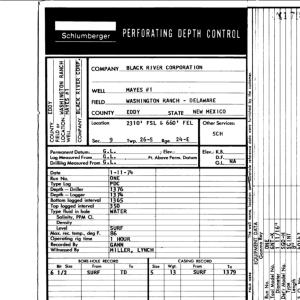 Schlumberger PERFORATING DEPTH CONTROL
COUNTY EDDY
FIELD or LOCATION WASHINGTON RANCH
WELL MAYES #1
COMPANY BLACK RIVER CORP.
COMPANY BLACK RIVER CORPORATION
WELL MAYES #1
FIELD WASHINGTON RANCH - DELAWARE
COUNTY EDDY STATE NEW MEXICO
Location 2310' FSL & 660' FEL
Other Services:
SCH
Sec. 9 Twp. 26-S Rge. 24-E
Permanent Datum: G.L. Elev.: Elev.: K.B.
Log Measured From G.L. Ft. Above Perm. Datum D.F.
Drilling Measured From G.L. G.L. NA
Date 1-11-74
Run No. ONE
Type Log PDC
Depth - Driller 1376
Depth - Logger 1374
Bottom logged interval 1365
Top logged interval 350
Type fluid in hole WATER
Salinity, PPM CL.
Density
Level SURF
Max. rec. temp., deg F. 86
Operating rig time 1 HOUR
Recorded By GANN
Witnessed By MILLER, LYNCH
BORE-HOLE RECORD CASING RECORD
Bit Size From To Size Wgt. From To
6 1/2 SURF TD 5 13 SURF 1379
EQUIPMENT DATA